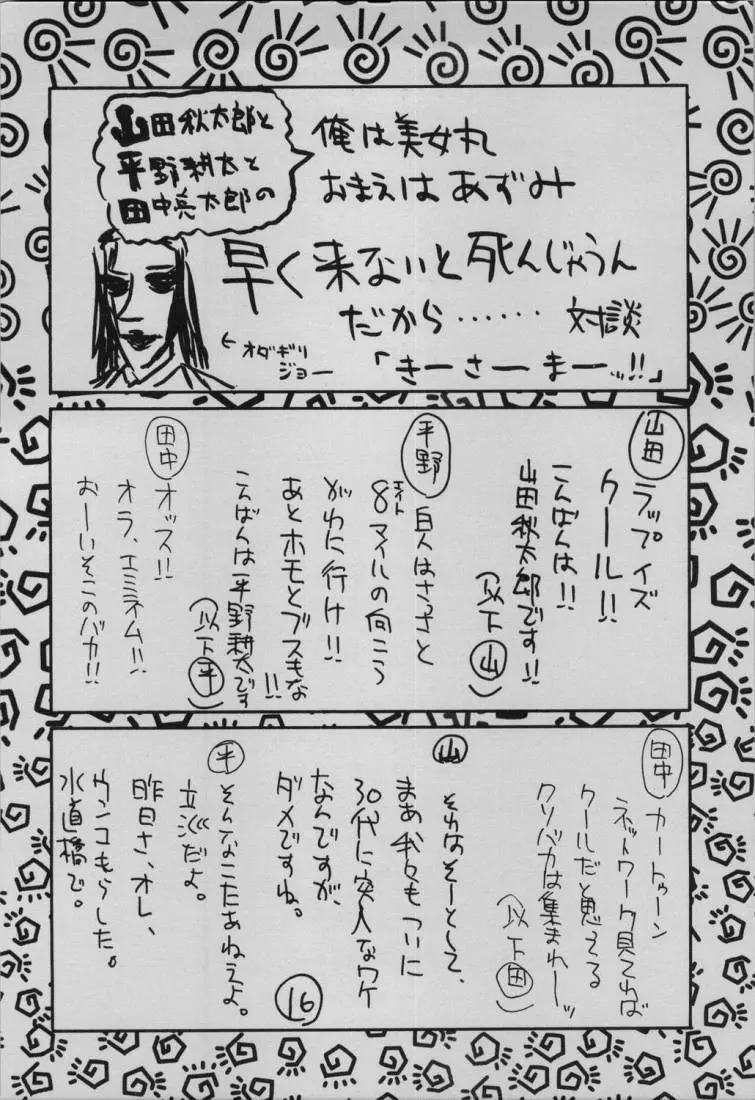 山田秋太郎と
平野耕太と
田中亮太郎の
俺は美女丸
おまえはあずみ
早く来ないと死んじゃうん
だから…… 対談
「きーさーまーッ!!」
←オダギリ
ジョー
山田 ラップイズ
クール!!
こんばんは!!
山田秋太郎です!!
(以下山)
平野 白人はさっさと
8マイルの向こう
エイト
がわに行け!!
あとホモとブスもな!!
こんばんは平野耕太です
(以下平)
田中 オッス!!
オラ、エミネム!!
おーいそこのバカ!!
田中 カートゥーン
ネットワーク見てれば
クールだと思ってる
クソバカは集まれーッ
(以下田)
山 それはそーとして、
まあ我々もついに
30代に突入なワケ
なんですが、
ダメですね。
平 そんなこたあねえよ。
立派だよ。
昨日さ、オレ、
ウンコもらした。
水道橋で。
16